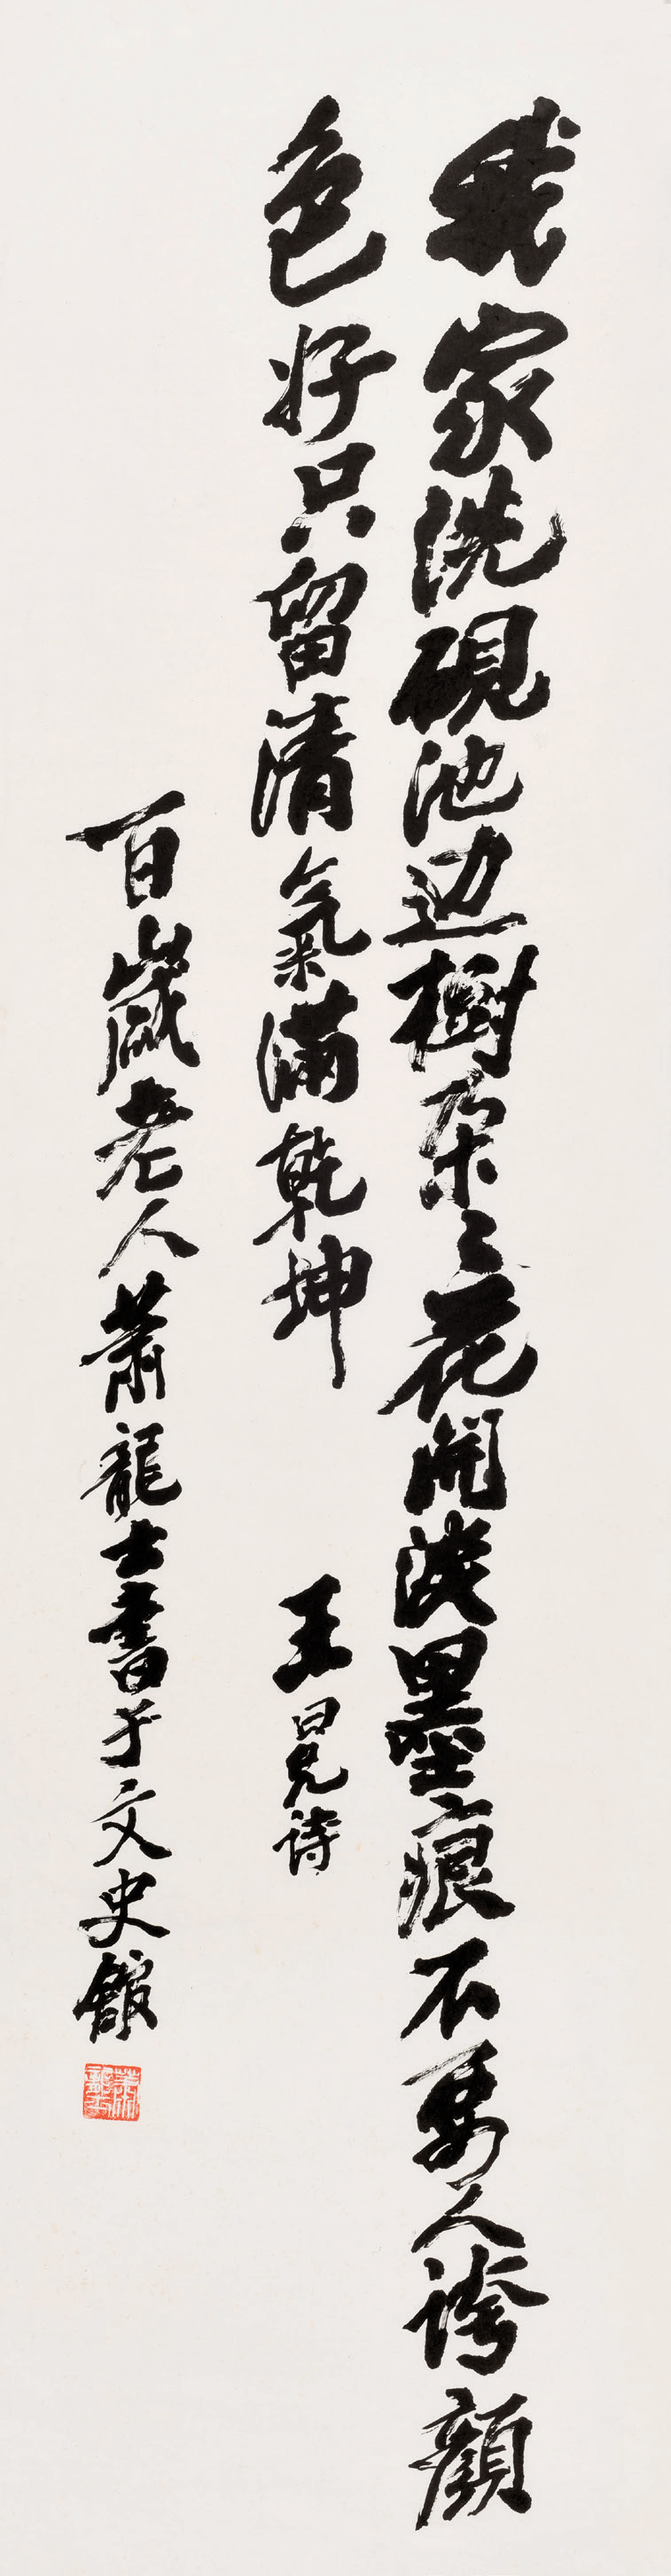 我家洗硯池边樹朵〻花開淡墨痕不要人誇顏
色好只留清氣滿乾坤
王冕诗
百歲老人萧龍士書于文史館
萧龍士